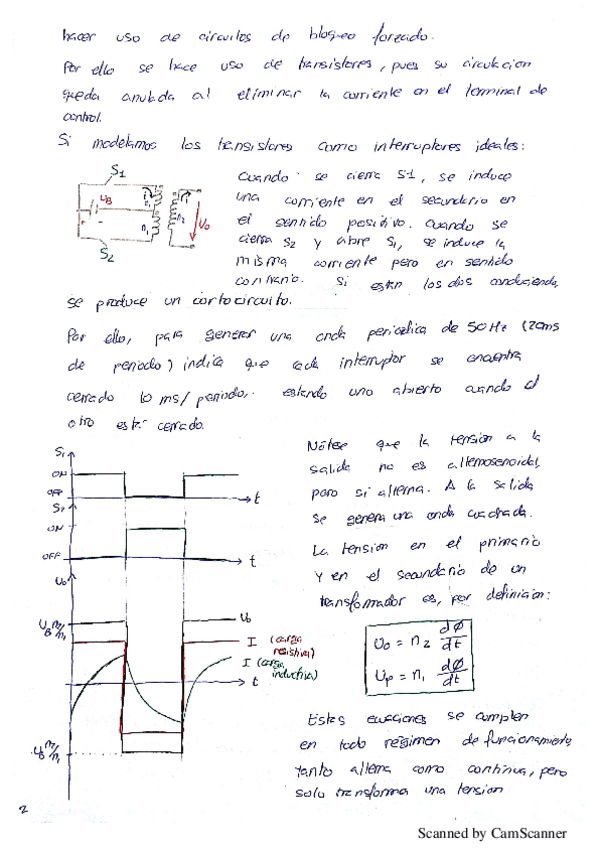 hacer uso de circuitos de bloqueo forzado.
Por ello se hace uso de transistores, pues su circulacion
queda anulada al eliminar la corriente en el terminal de
control.
Si modelamos los transistores como interruptores ideales:
S1
UB
n1
n2
n1
Uo
S2
Cuando se cierra S1, se induce
una corriente en el secundario en
el sentido positivo. Cuando se
cierra S2 y abre S1, se induce la
misma corriente pero en sentido
contrario. Si estan los dos conduciendo,
se produce un cortocircuito.
Por ello, para generar una onda periodica de 50Hz (20ms
de periodo) indica que cada interruptor se encuentra
cerrado 10 ms/periodo, estando uno abierto cuando el
otro está cerrado.
S1
ON
OFF
t
S2
ON
OFF
t
Uo
UB n2/n1
Uo
I (carga
resistiva)
I (carga
inductiva)
t
-UB n2/n1
Nótese que la tension a la
salida no es alternosenoidal,
pero si alterna. A la salida
se genera una onda cuadrada.
La tension en el primario
y en el secundario de un
transformador es, por definicion:
Uo = n2 dØ/dt
Up = n1 dØ/dt
Estas ecuaciones se cumplen
en todo régimen de funcionamiento,
tanto alterna como continua, pero
solo transforma una tension
2
Scanned by CamScanner